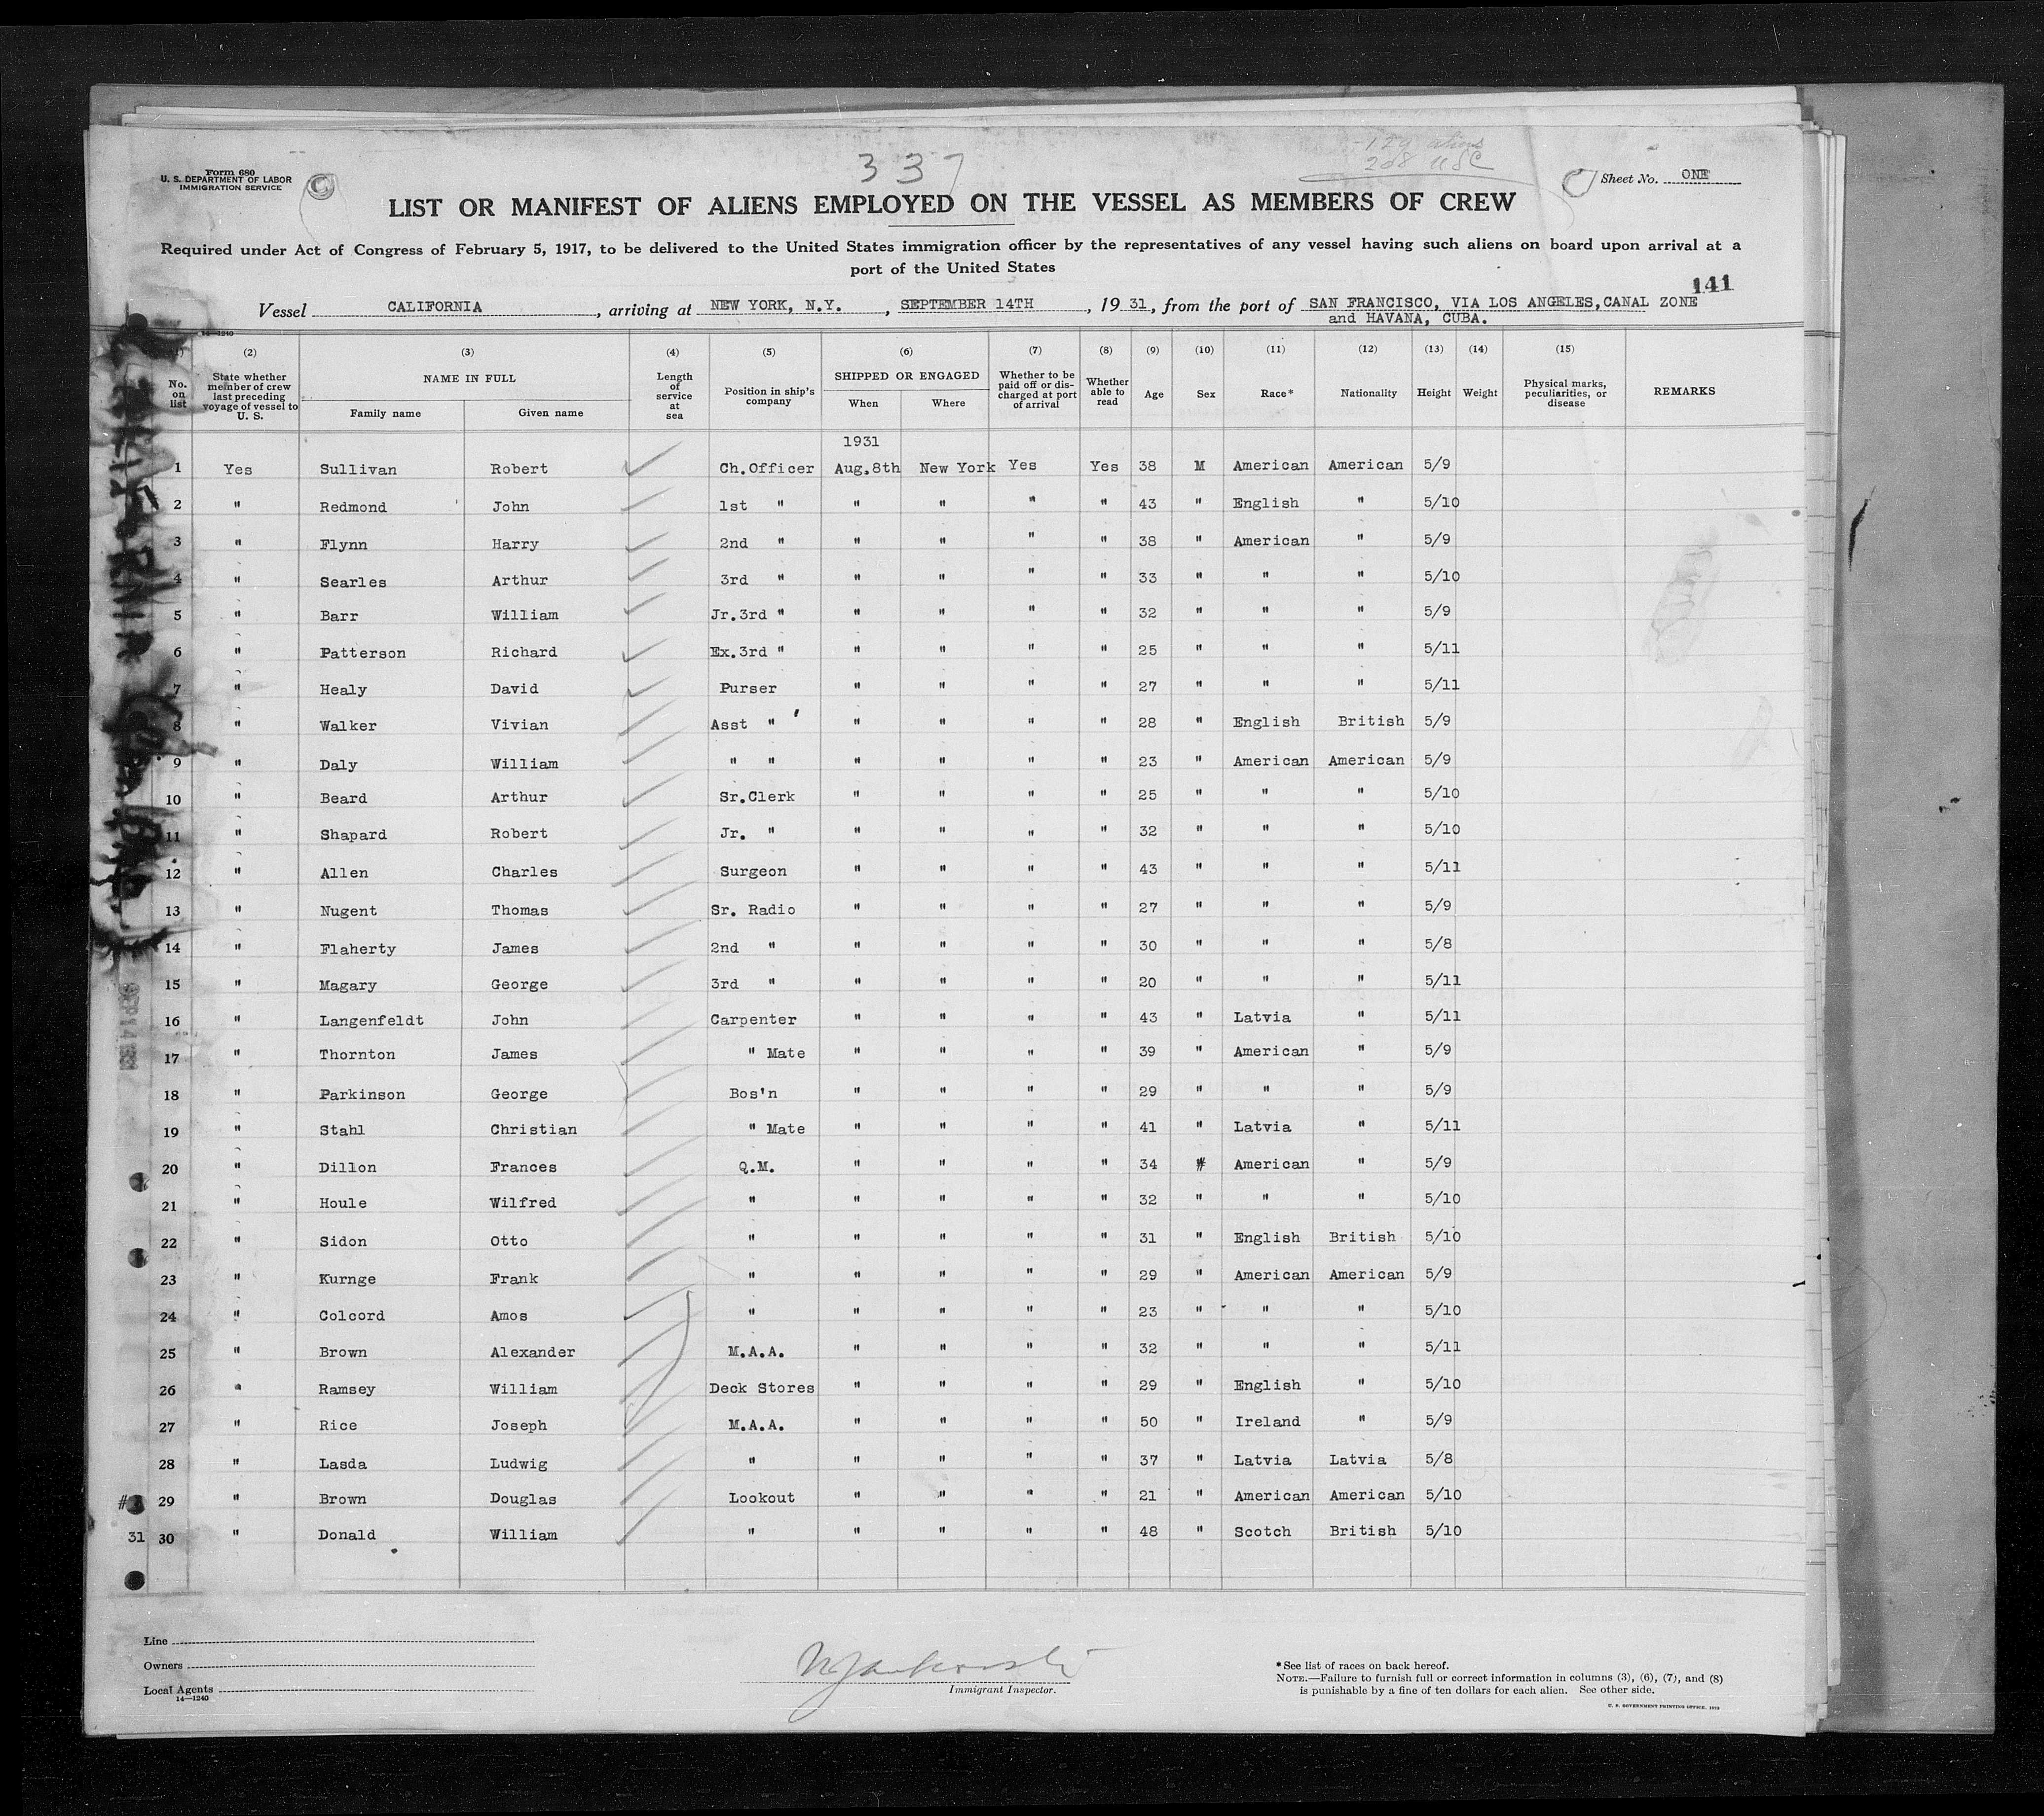 337
129 aliens
208 USC
Form 680
U. S. DEPARTMENT OF LABOR
IMMIGRATION SERVICE
Sheet No. ONE
LIST OR MANIFEST OF ALIENS EMPLOYED ON THE VESSEL AS MEMBERS OF CREW
Required under Act of Congress of February 5, 1917, to be delivered to the United States immigration officer by the representatives of any vessel having such aliens on board upon arrival at a
port of the United States
141
Vessel CALIFORNIA, arriving at NEW YORK, N.Y., SEPTEMBER 14TH, 1931, from the port of SAN FRANCISCO, VIA LOS ANGELES, CANAL ZONE
and HAVANA, CUBA.
14—1240
(2) (3) (4) (5) (6) (7) (8) (9) (10) (11) (12) (13) (14) (15)
No. on list State whether member of crew last preceding voyage of vessel to U. S. NAME IN FULL Family name Given name Length of service at sea Position in ship's company SHIPPED OR ENGAGED When Where Whether to be paid off or discharged at port of arrival Whether able to read Age Sex Race* Nationality Height Weight Physical marks, peculiarities, or disease REMARKS
1931
1 Yes Sullivan Robert Ch.Officer Aug.8th New York Yes Yes 38 M American American 5/9
2 " Redmond John 1st " " " " " 43 " English " 5/10
3 " Flynn Harry 2nd " " " " " 38 " American " 5/9
4 " Searles Arthur 3rd " " " " " 33 " " " 5/10
5 " Barr William Jr.3rd " " " " " 32 " " " 5/9
6 " Patterson Richard Ex.3rd " " " " " 25 " " " 5/11
7 " Healy David Purser " " " " 27 " " " 5/11
8 " Walker Vivian Asst " " " " " 28 " English British 5/9
9 " Daly William " " " " " " 23 " American American 5/9
10 " Beard Arthur Sr.Clerk " " " " 25 " " " 5/10
11 " Shapard Robert Jr. " " " " " 32 " " " 5/10
12 " Allen Charles Surgeon " " " " 43 " " " 5/11
13 " Nugent Thomas Sr. Radio " " " " 27 " " " 5/9
14 " Flaherty James 2nd " " " " " 30 " " " 5/8
15 " Magary George 3rd " " " " " 20 " " " 5/11
16 " Langenfeldt John Carpenter " " " " 43 " Latvia " 5/11
17 " Thornton James " Mate " " " " 39 " American " 5/9
18 " Parkinson George Bos'n " " " " 29 " " " 5/9
19 " Stahl Christian " Mate " " " " 41 " Latvia " 5/11
20 " Dillon Frances Q.M. " " " " 34 " American " 5/9
21 " Houle Wilfred " " " " " 32 " " " 5/10
22 " Sidon Otto " " " " " 31 " English British 5/10
23 " Kurnge Frank " " " " " 29 " American American 5/9
24 " Colcord Amos " " " " " 23 " " " 5/10
25 " Brown Alexander M.A.A. " " " " 32 " " " 5/11
26 " Ramsey William Deck Stores " " " " 29 " English " 5/10
27 " Rice Joseph M.A.A. " " " " 50 " Ireland " 5/9
28 " Lasda Ludwig " " " " " 37 " Latvia Latvia 5/8
# 29 " Brown Douglas Lookout " " " " 21 " American American 5/10
31 30 " Donald William " " " " " 48 " Scotch British 5/10
Line
Owners
Local Agents
14—1240
Immigrant Inspector.
*See list of races on back hereof.
NOTE.—Failure to furnish full or correct information in columns (3), (6), (7), and (8)
is punishable by a fine of ten dollars for each alien. See other side.
U. S. GOVERNMENT PRINTING OFFICE
SEP 14 1931